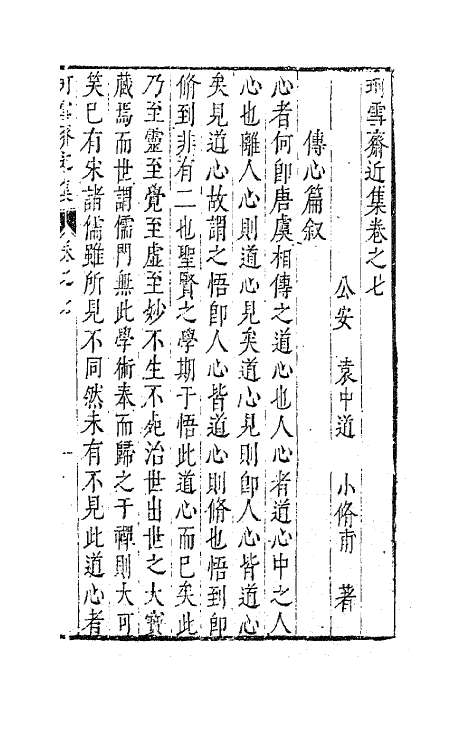 珂雪齋近集卷之七
公安 袁中道 小脩甫 著
傳心篇叙
心者何卽唐虞相傳之道心也人心者道心中之人
心也離人心則道心見矣道心見則卽人心皆道心
矣見道心故謂之悟卽人心皆道心則脩也悟到卽
脩到非有二也聖賢之學期于悟此道心而巳矣此
乃至靈至覺至虛至妙不生不死治世出世之大寶
藏焉而世謂儒門無此學術奉而歸之于禪則大可
笑巳有宋諸儒雖所見不同然未有不見此道心者
珂雪齋近集 卷之七 一